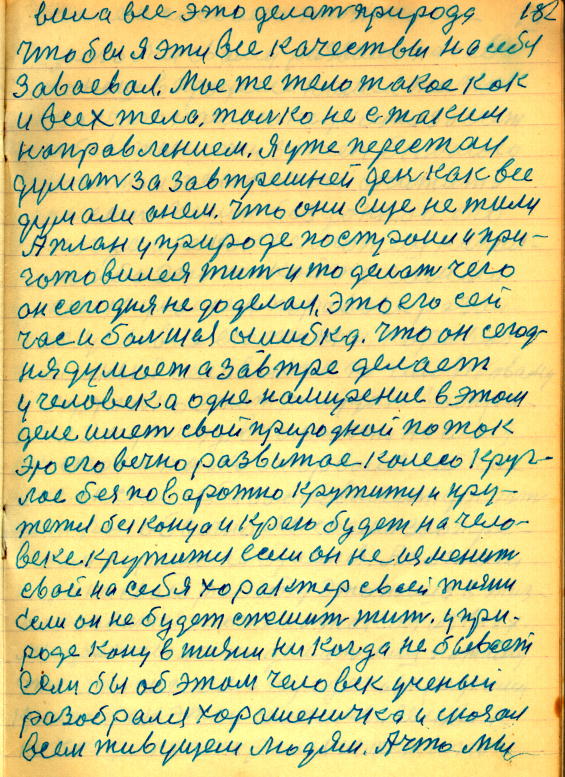 вила все это делат природа 182
Чтобы я эти все качествы на себя
Заваевал. Мое же тело такое как
и всех тела. только не с таким
направлением. Я уже перестал
думат за завтрешней ден как все
думали онем. Что они еще не жили
А план у природе построил и при-
готовился жит и то делат чего
он сегодня не доделал. Это его сей
час и болшая ошибка. Что он сегод-
ня думает а завтре делает
у человека одне намирение в этом
деле имет свой природной поток
Это его вечно развитае колесо круг-
лое без поваротно кружит и кру-
жется без конца и краю будет на чело-
веке кружится если он не изменит
свой на себя характер своей жизни
Если он не будет спешит жит. у при-
роде кону в жизни ни когда не бывает
Если бы об этом человек ученый
разобрался хорашеничка и сказал
всем живущем людям. А что мы